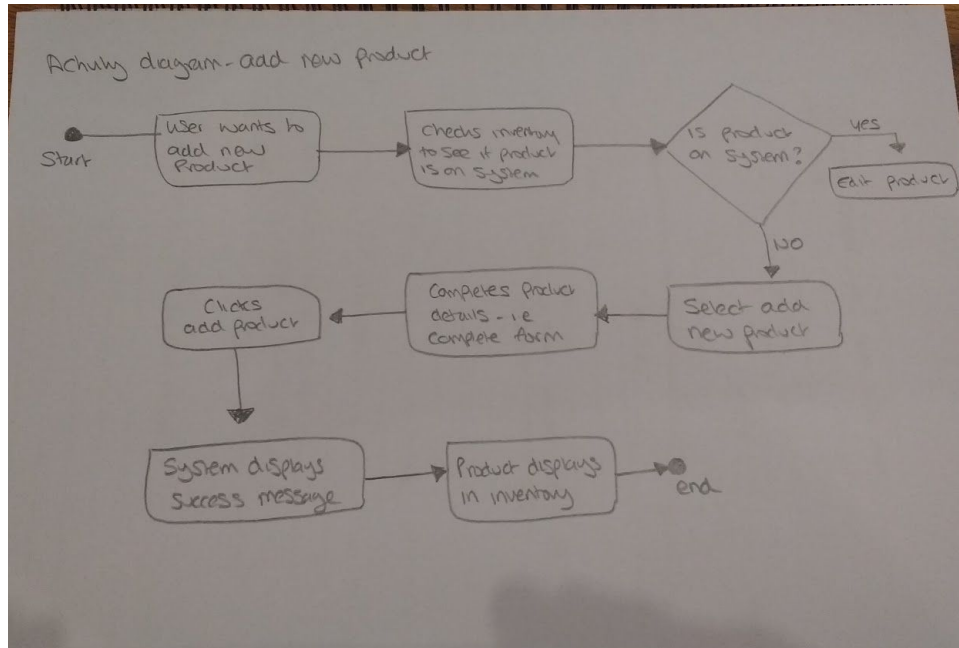 Activity diagram - add new product
Start
User wants to
add new
Product
Checks inventory
to see if product
is on system
Is product
on system?
yes
Edit product
NO
Select add
new product
Completes product
details - ie
complete form
Clicks
add product
System displays
success message
Product displays
in inventory
end